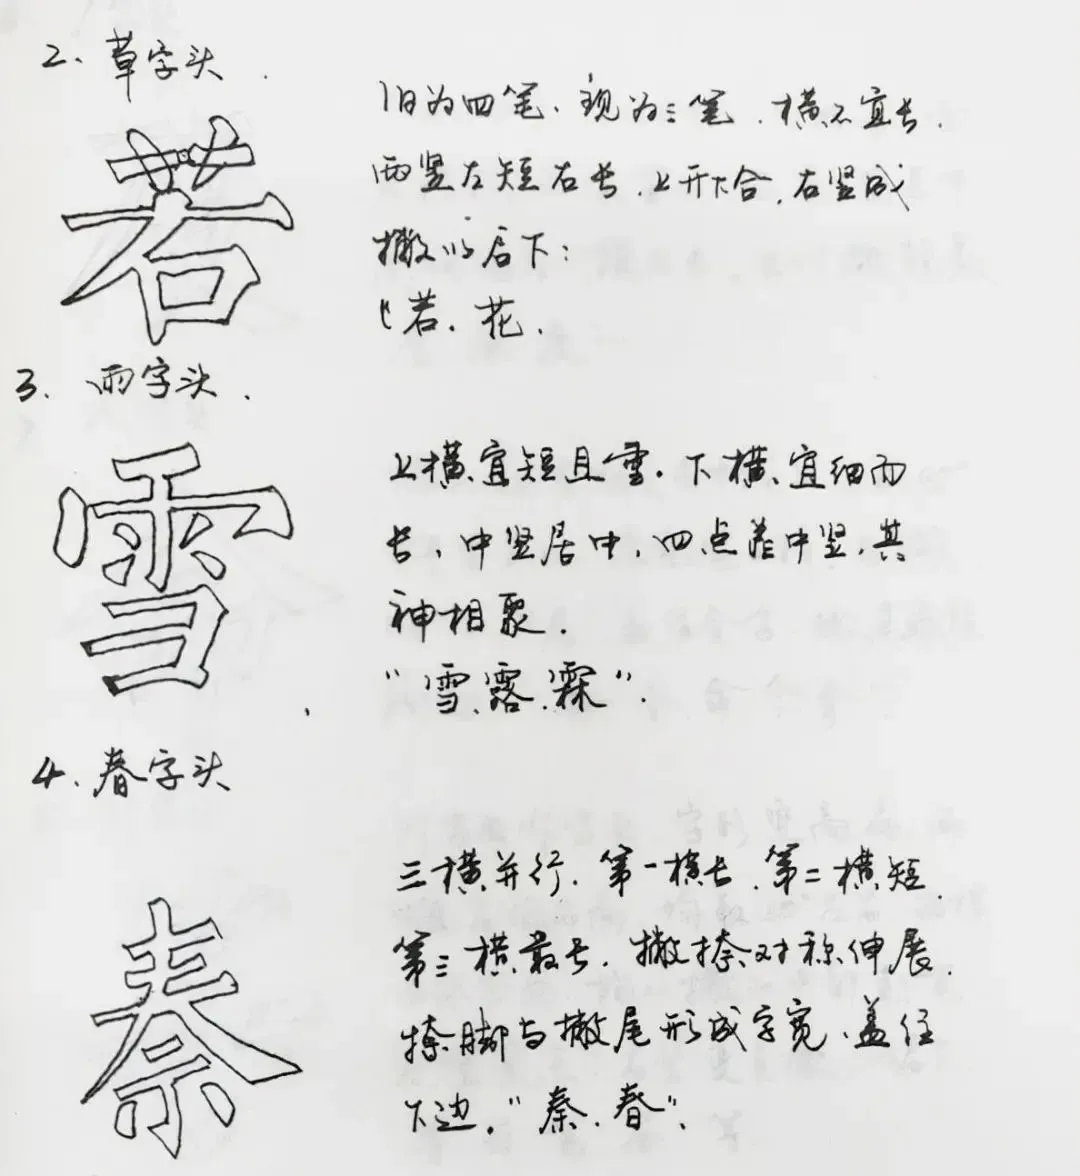 2、草字头.
若
旧为四笔、现为三笔.横不宜长.
两竖左短右长.上开下合.右竖成
撇以后下:
“若.花.
3.雨字头.
雪
上横宜短且重.下横宜细而
长、中竖居中、四点靠中竖.其
神相聚.
“雪.露.霖”.
4.春字头
秦
三横并行.第一横长.第二横短.
第三横最长.撇捺对称伸展.
捺脚与撇尾形成字宽.盖住
下边.“秦.春”.